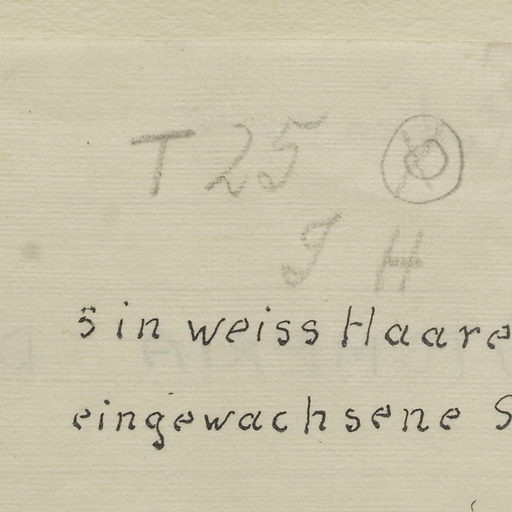 T 25
J H
5 in weiss Haare
eingewachsene S